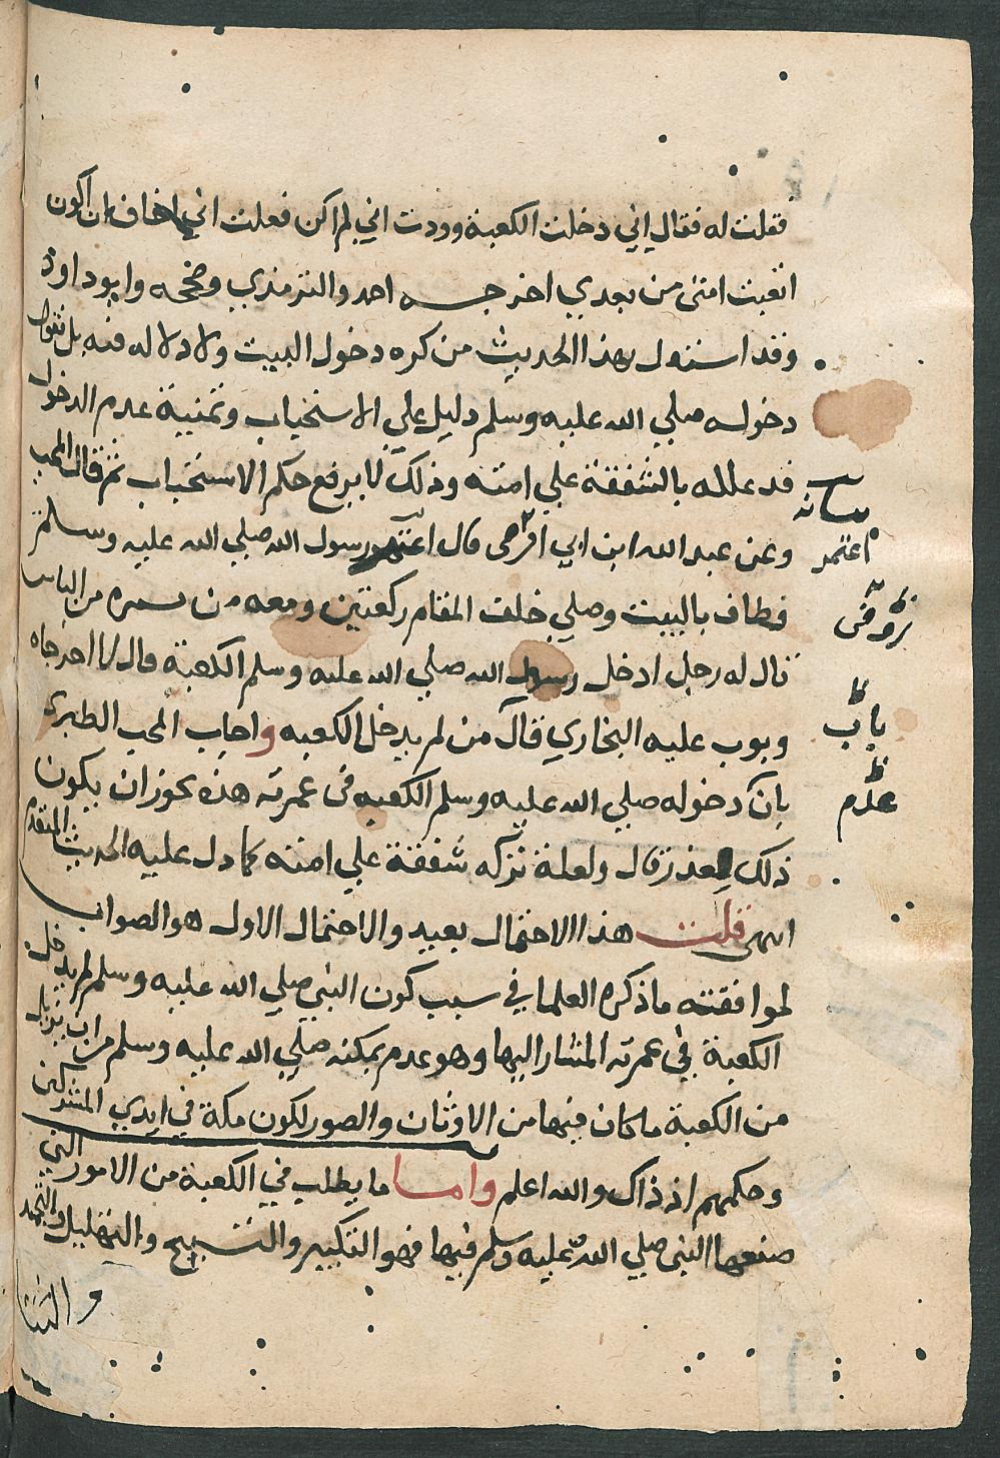 فقلت له فقال إني دخلت الكعبة ووددت اني لم اكن فعلت اني اخاف ان اكون
اتعبت امتي من بعدي اخرجه احمد والترمذي وصححه وابوداود
وقد استدل بهذا الحديث من كره دخول البيت ولا دلاله فيه بل نقول
دخوله صلي الله عليه وسلم دليل علي الاستحباب وتمنية عدم الدخول
قد علله بالشفقة علي امته وذلك لا يرفع حكم الاستحباب ثم قال المحب
وعن عبد الله ابن ابي اوفي قال اعتمر رسول الله صلي الله عليه وسلم
فطاف بالبيت وصلي خلف المقام ركعتين ومعه من يستره من الناس
قال له رجل ادخل رسول الله صلي الله عليه وسلم الكعبة قال لا اخرجاه
وبوب عليه البخاري قال من لم يدخل الكعبه واجاب المحب الطبري
بان دخوله صلي الله عليه وسلم الكعبه في عمرته هذه يجوز ان يكون
ذلك لعذر قال ولعلة تركه شفقة علي امته كما دل عليه الحديث المتقدم
انتهى قلت هذا الاحتمال بعيد والاحتمال الاول هو الصواب
لموافقته ما ذكره العلما في سبب كون النبي صلي الله عليه وسلم لم يدخل
الكعبة في عمرته المشار اليها وهو عدم تمكنه صلي الله عليه وسلم من ان يزيل
من الكعبة ما كان فيها من الاوثان والصور لكون مكة في ايدي المشركين
وحكمهم اذ ذاك والله اعلم واما ما يطلب في الكعبة من الامور التي
صنعها النبي صلي الله عليه وسلم فيها فهو التكبير والتسبيح والتهليل والتحميد
والثنا
اعتمر
باب
عدم